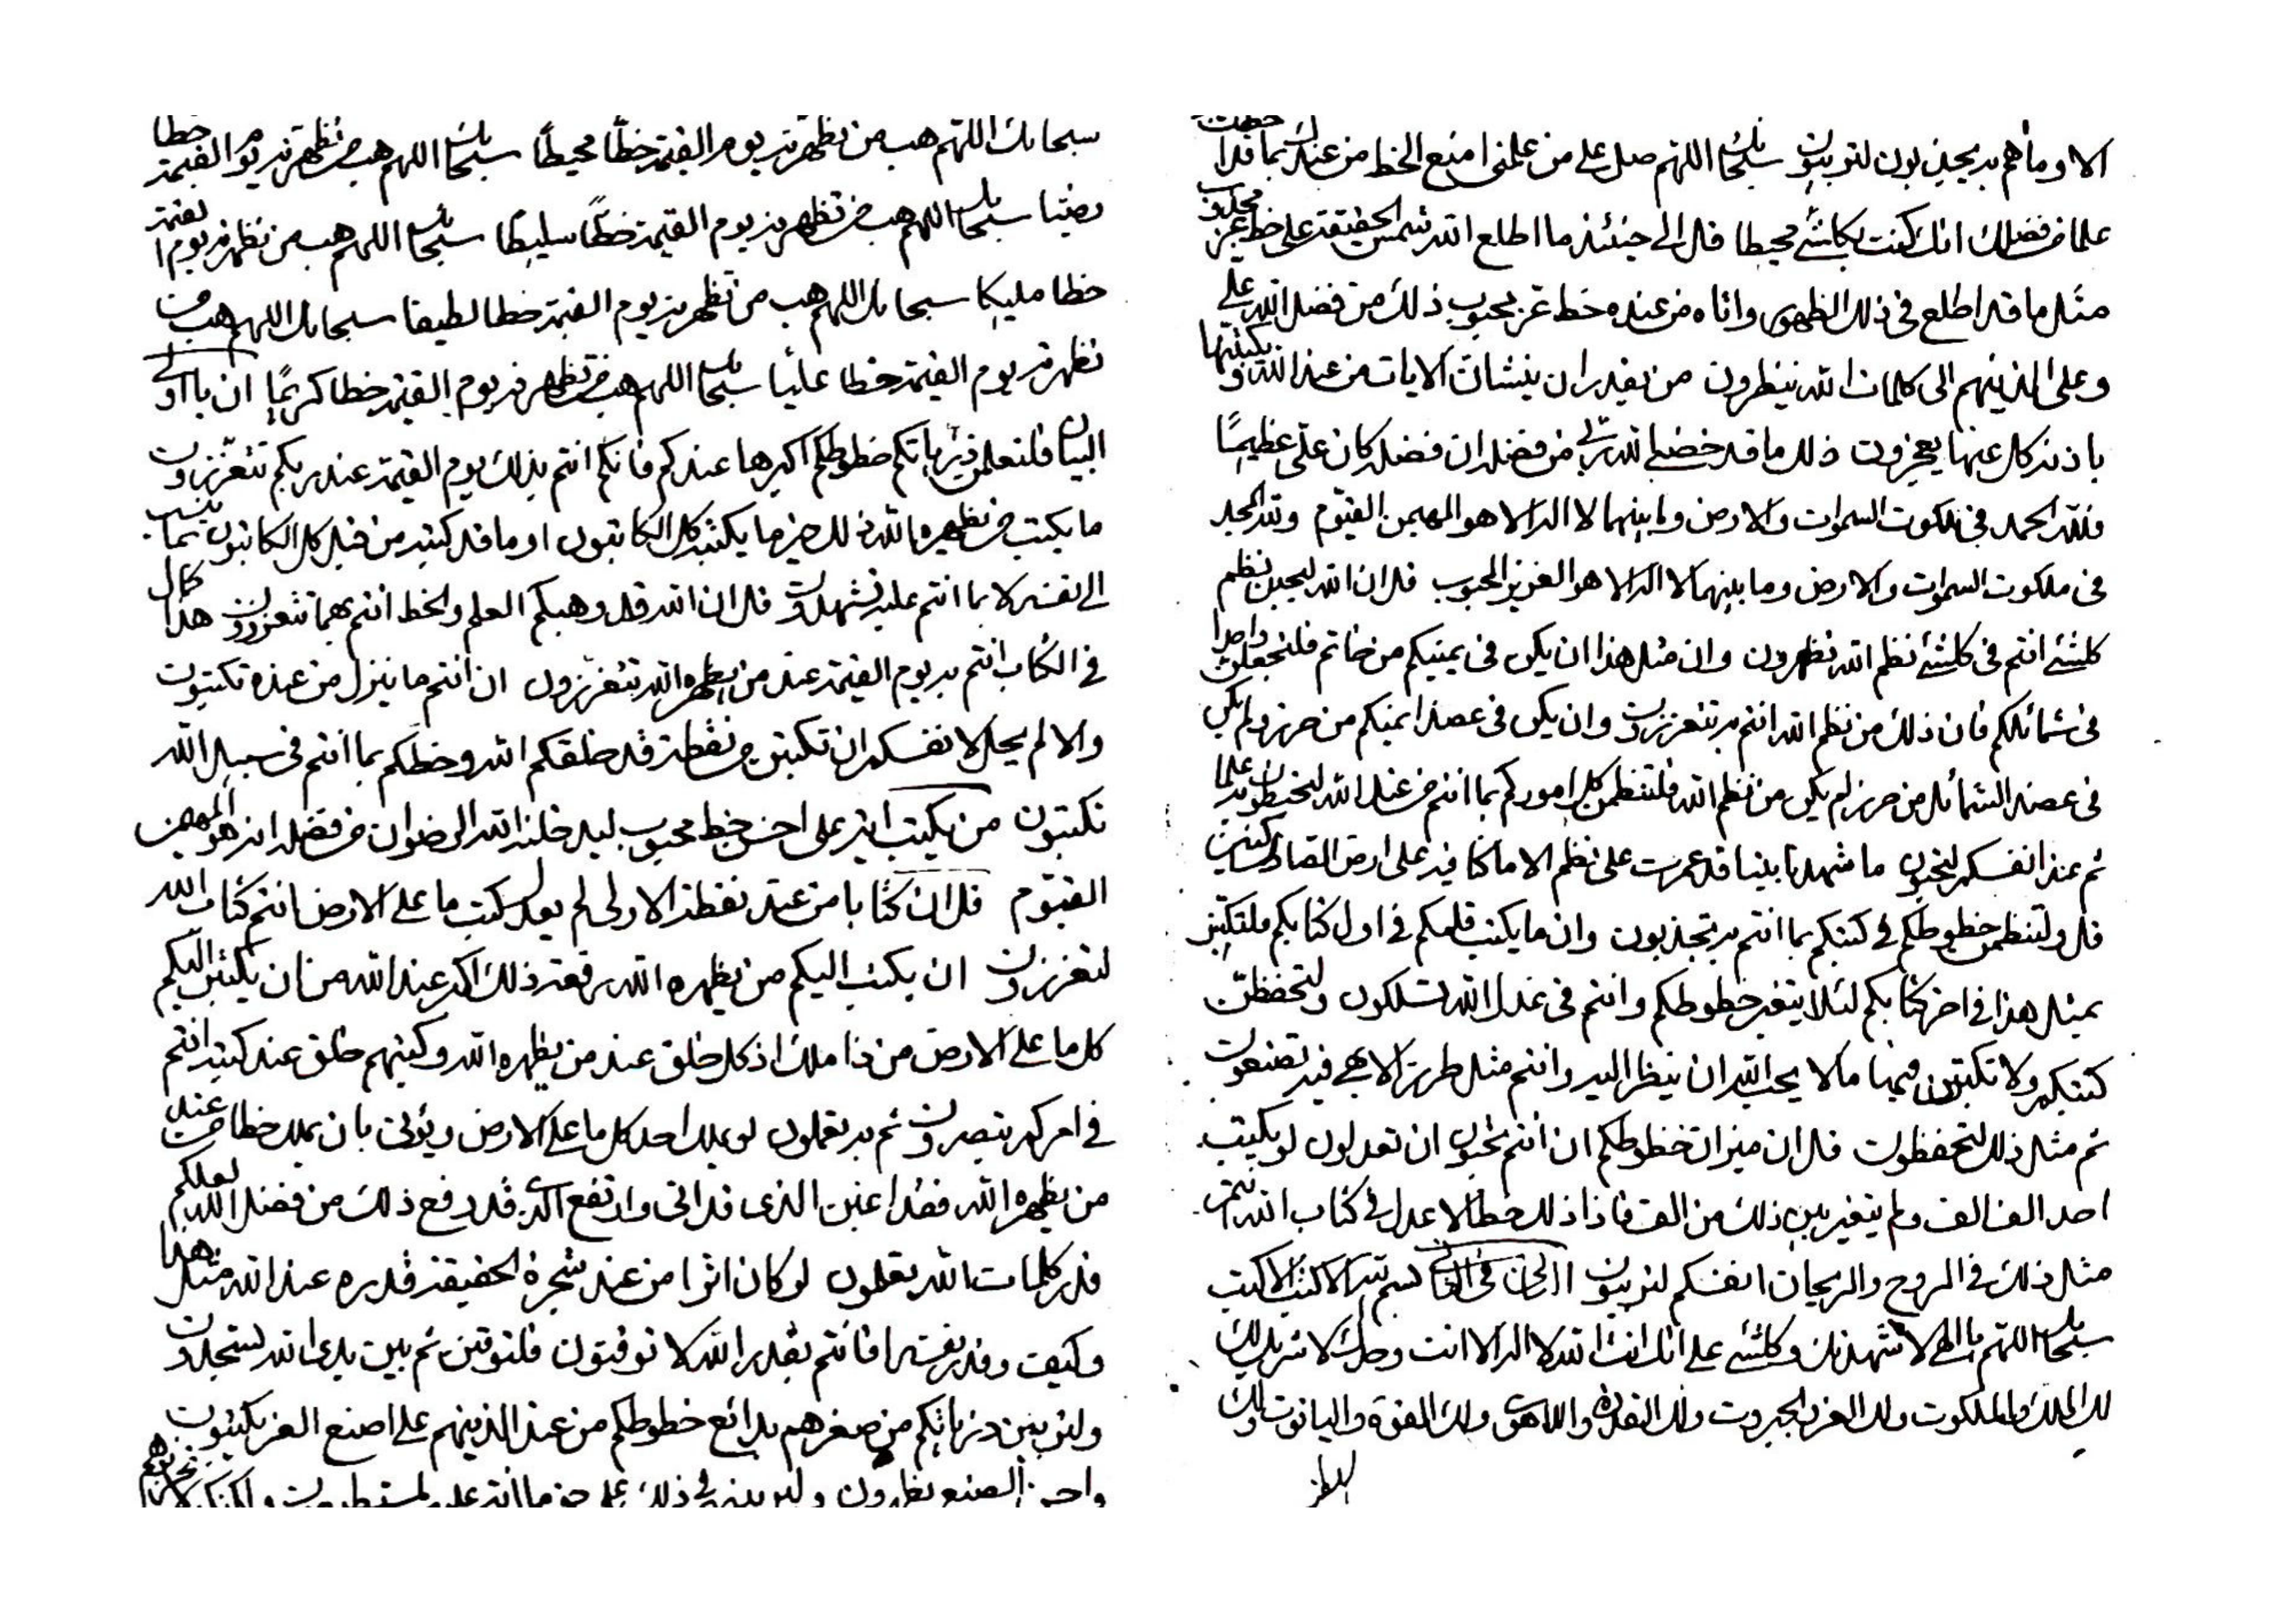 الا وما هم به يجذبون لتربيون سبحانك اللهم صل على من علمني امنع الخط من عندك بما قد
علما من فضلك انك كنت بكلشئ محيطا قل الى حينئذ ما اطلع الله شمس الحقيقة على خط عز محبوب
مثل ما قد اطلع في ذلك الظهور واتاه من عنده خط عز محبوب ذلك من فضل الله على
وعلى الذينهم الى كلمات الله ينظرون من يقدر ان ينشأن الايات من عند الله ويكتبنها
باذنه كل عنها يعجزون ذلك ما قد خصني الله ربي من فضله ان فضله كان علي عظيما
فلله الحمد في ملكوت السموات والارض وما بينهما لا اله الا هو المهيمن القيوم ولله المجد
في ملكوت السموات والارض وما بينهما لا اله الا هو العزيز المحبوب قل ان الله ليحبن نظم
كلشئ انتم في كلشئ نظم الله تظهرون وان مثل هذا ان يكن في يمينكم من خاتم فلتجعلن واحدا
في شمائلكم فان ذلك من نظم الله انتم به تتعززون وان يكن في عضد ايمنكم من حرز ولم يكن
في عضد الشمائل من حرز لم يكن من نظم الله فلتنظمن كل اموركم بما انتم من عند الله لتحيطون به علما
ثم عند انفسكم لتحبون ما شهدنا بيتا قد عمرت على نظم الا ما كنا فيه على ارض الصاد
قل ولتنظمن خطوطكم في كتبكم بما انتم به تجذبون وان ما يكتب قلمكم في اول كتابكم فلتكتبن
بمثل هذا في اخر كتابكم لئلا يتغير خطوطكم وانتم في عدل الله تسلكون ولتحفظن
كتبكم ولا تكتبون فيها ما لا يحب الله ان ينظر اليه وانتم مثل طرز الابهى فيه تصنعون
ثم مثل ذلك لتحفظون قل ان ميزان خطوطكم ان انتم تحبون ان تعدلون لو يكتب
احد الف الف ولم يتغير بين ذلك من الف فاذا ذلك خط الاعدل في كتاب الله انتم
مثل ذلك في الروح والريحان انفسكم لتربيون الثاني في الثاني بسم الله الاكتب الاكتب
سبحانك اللهم يا الهي لاشهدنك وكلشئ على انك انت الله لا اله الا انت وحدك لا شريك لك
لك الملك والملكوت ولك العز والجبروت ولك القدرة واللاهوت ولك القوة والياقوت ولك
سبحانك اللهم هب من نظهرنه يوم القيمة خطا محيطا سبحانك اللهم هب من نظهرنه يوم القيمة خطا
رضيا سبحانك اللهم هب من تظهرنه يوم القيمة خطا سليطا سبحانك اللهم هب من تظهرنه يوم القيمة
خطا مليكا سبحانك اللهم هب من تظهرنه يوم القيمة خطا لطيفا سبحانك اللهم هب من
تظهرنه يوم القيمة خطا عليا سبحانك اللهم هب من تظهرنه يوم القيمة خطا كريما ان يا اولي
البيان فلتعلمن ذرياتكم خطوطكم اكبرها عندكم فانكم انتم بذلك يوم القيمة عند ربكم تتعززون
ما يكتب من يظهره الله ذلك خير مما يكتبن كل الكاتبون او ما قد كتب من قبل كل الكاتبون بما ينسب
الى نفسه لا بما انتم عليه تشهدون قل ان الله قد وهبكم العلم والخط انتم بهما تتعززون هذا كمال
في الكتاب انتم به يوم القيمة عند من يظهره الله تتعززون ان انتم ما ينزل من عنده تكتبون
والا لم يحل لانفسكم ان تكتبن من نقطة قد خلقكم الله وخطكم بما انتم في سبيل الله
تكتبون من يكتب اية على احسن خط محبوب ليدخلنه الله الرضوان من فضله انه هو المهيمن
القيوم قل ان كتابا من عند نقطة الاولى لم يعدل كتب ما على الارض انتم كتاب الله
لتعززون ان يكتب اليكم من يظهره الله رقعة ذلك اكبر عند الله من ان يكتبن اليكم
كل ما على الارض من ذا ملك اذ كل خلق عند من يظهره الله وكتبهم خلق عند كتبه انتم
في امركم تبصرون ثم به تعملون لو يملك احد كل ما على الارض ويؤتى بان يملك خطا من عند
من يظهره الله فقد اغبن الذي قد اتى وارتفع الذي قد رفع ذلك من فضل الله لعلكم
قدر كلمات الله تعلمون لو كان اثرا من عند شجرة الحقيقة قدره عند الله مثل هذا
وكيف وقدر نفسه افانتم بقدر الله لا توقنون فلتوقنن ثم بين يدي الله لتسجدون
ولتربين ذرياتكم من صغرهم بدائع خطوطكم من عند الذينهم على اصنع العز يكتبون
واحسن الصنع يظهرون